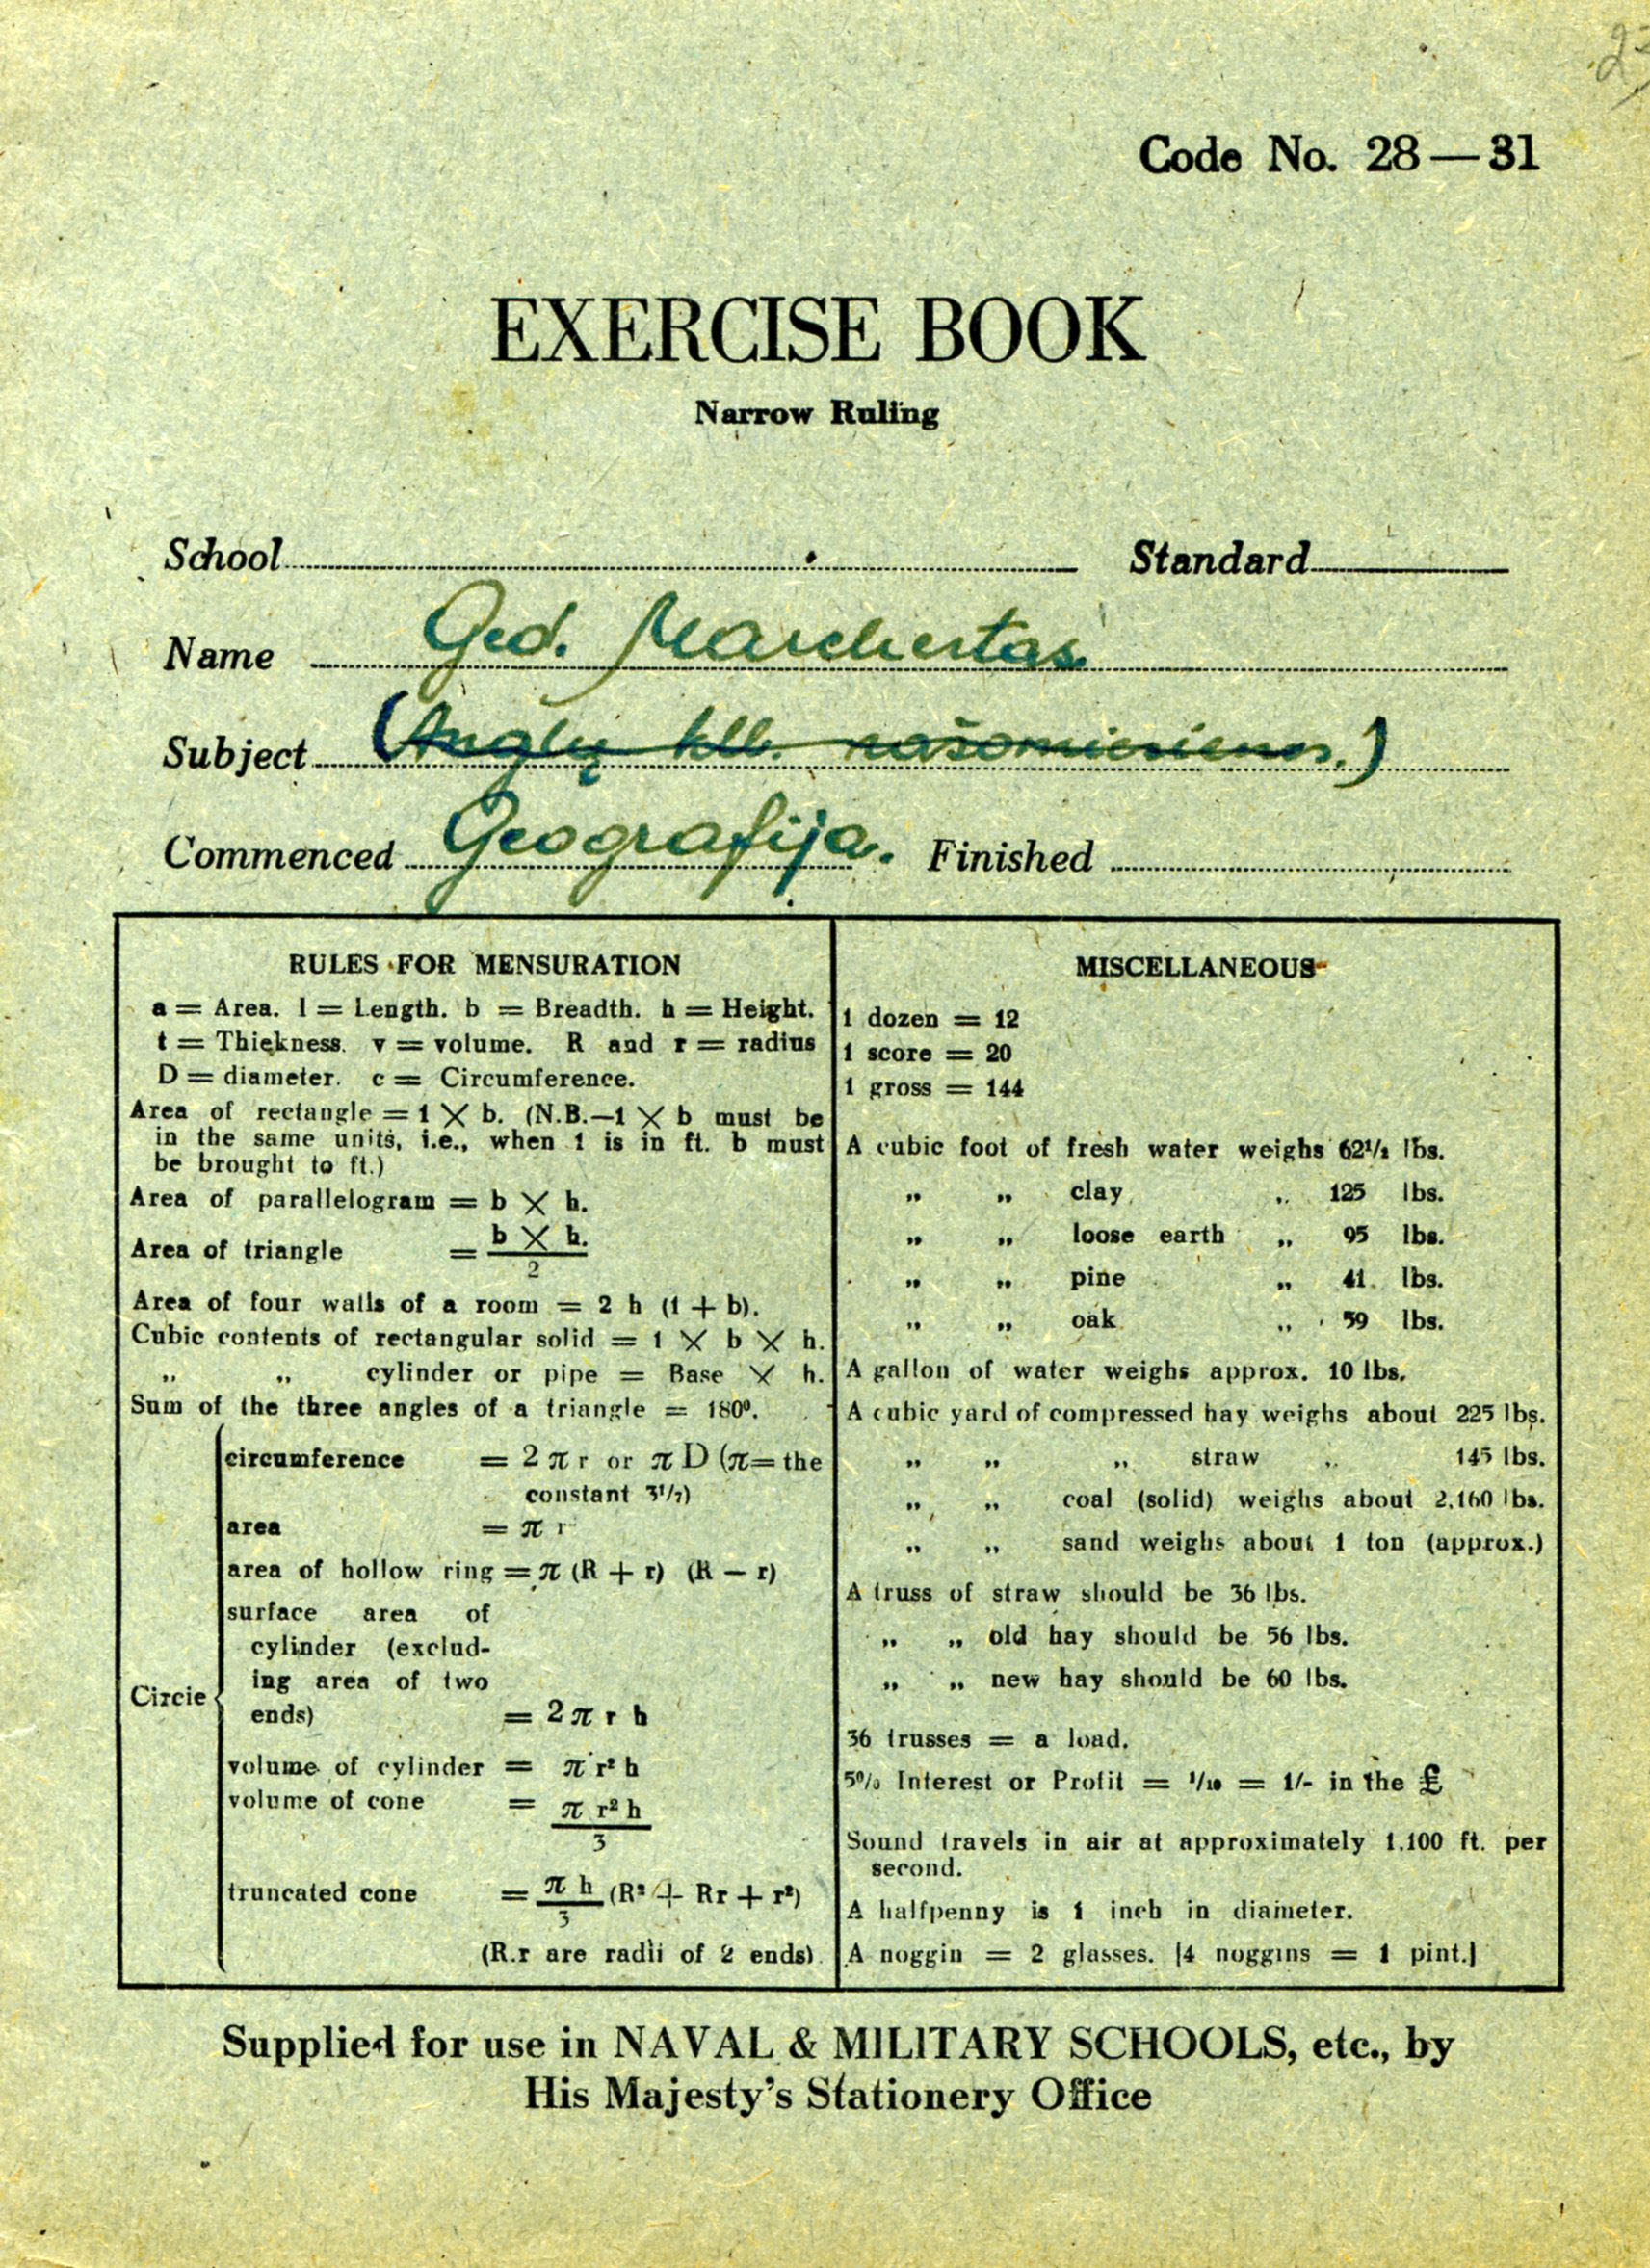 Code No. 28—31
EXERCISE BOOK
Narrow Ruling
School Standard
Name Ged. Marchertas
Subject (Anglų klb. rašomieji
Commenced Geografija. Finished
RULES FOR MENSURATION
a = Area. l = Length. b = Breadth. h = Height.
t = Thickness. v = volume. R and r = radius
D = diameter. c = Circumference.
Area of rectangle = l × b. (N.B.—l × b must be
in the same units, i.e., when l is in ft. b must
be brought to ft.)
Area of parallelogram = b × h.
Area of triangle = b × h.
2
Area of four walls of a room = 2 h (l + b).
Cubic contents of rectangular solid = l × b × h.
„ „ cylinder or pipe = Base × h.
Sum of the three angles of a triangle = 180⁰.
circumference = 2 π r or π D (π = the
constant 3¹/₇)
area = π r
area of hollow ring = π (R + r) (R — r)
surface area of
cylinder (exclud-
ing area of two
Circle
ends) = 2 π r h
volume of cylinder = π r² h
volume of cone = π r² h
3
truncated cone = π h (R² + Rr + r²)
3
(R.r are radii of 2 ends)
MISCELLANEOUS
1 dozen = 12
1 score = 20
1 gross = 144
A cubic foot of fresh water weighs 62¹/₂ lbs.
„ „ clay „ 125 lbs.
„ „ loose earth „ 95 lbs.
„ „ pine „ 41 lbs.
„ „ oak „ 59 lbs.
A gallon of water weighs approx. 10 lbs.
A cubic yard of compressed hay weighs about 225 lbs.
„ „ „ straw „ 145 lbs.
„ „ coal (solid) weighs about 2,160 lbs.
„ „ sand weighs about 1 ton (approx.)
A truss of straw should be 36 lbs.
„ „ old hay should be 56 lbs.
„ „ new hay should be 60 lbs.
36 trusses = a load.
5% Interest or Profit = ¹/₂₀ = 1/- in the £
Sound travels in air at approximately 1,100 ft. per
second.
A halfpenny is 1 inch in diameter.
A noggin = 2 glasses. [4 noggins = 1 pint.]
Supplied for use in NAVAL & MILITARY SCHOOLS, etc., by
His Majesty's Stationery Office